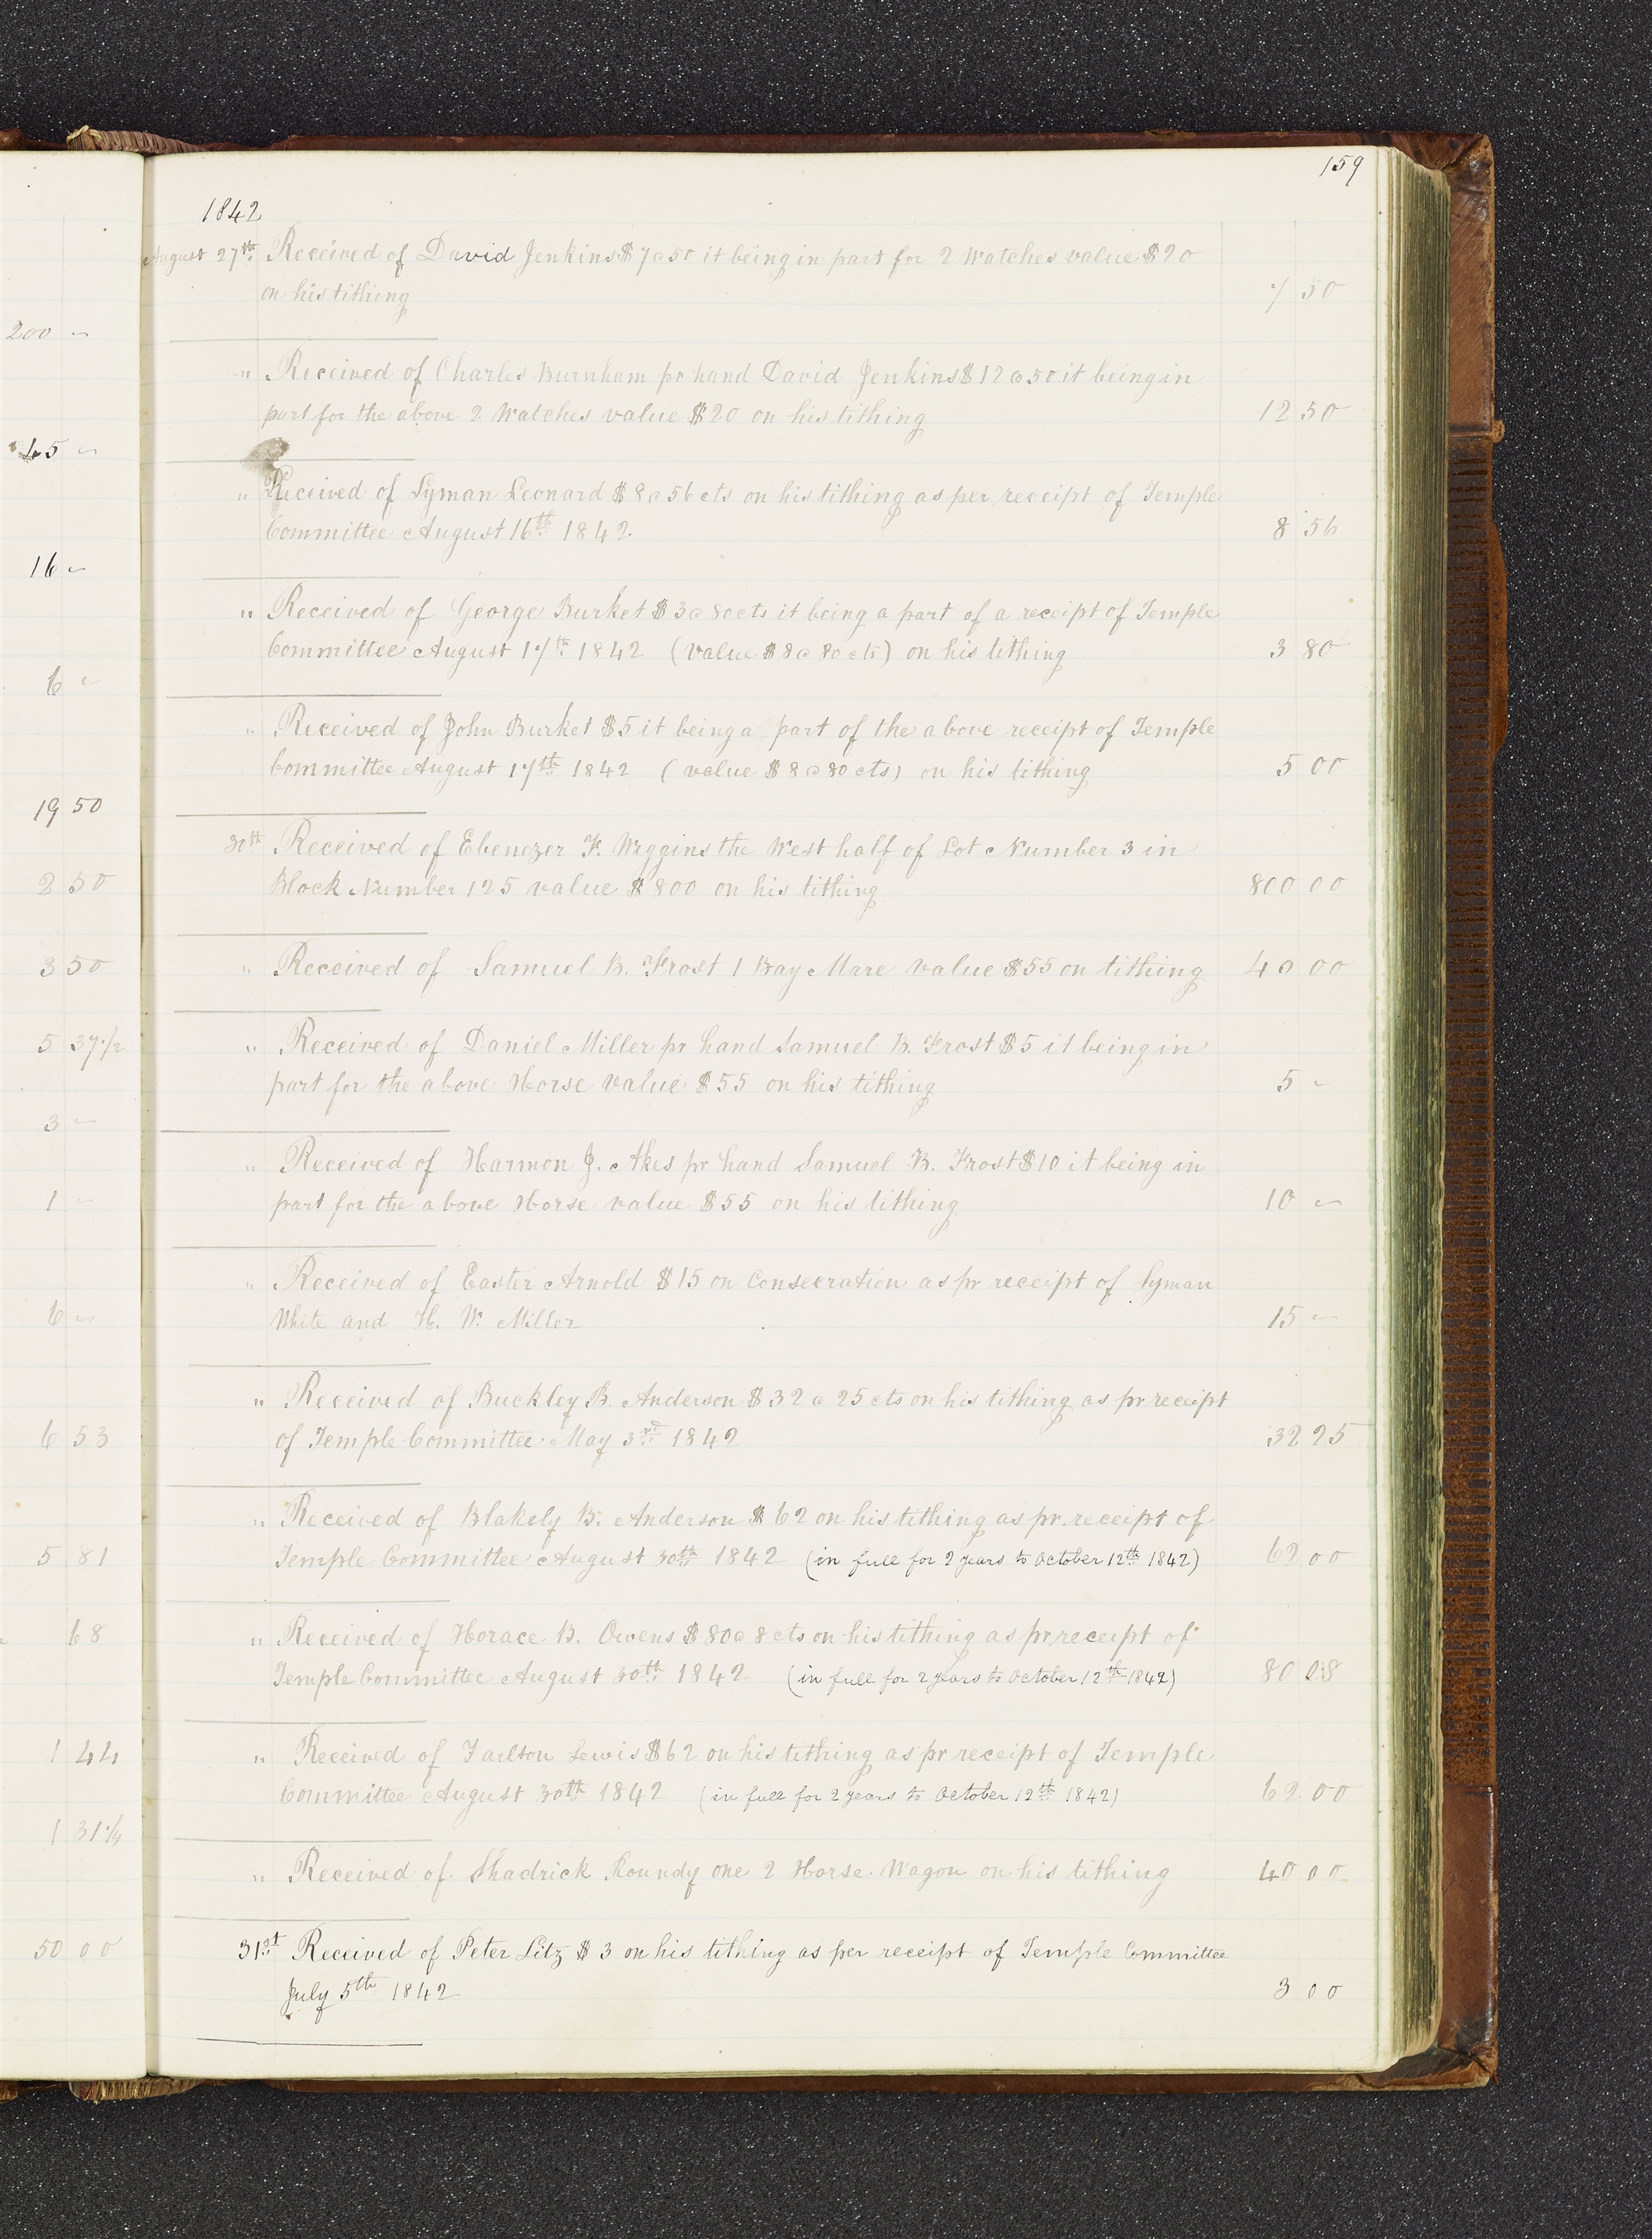 159
1842
August 27th Received of David Jenkins $7 @ 50 it being in part for 2 Watches value $20
on his tithing 7 50
200 -
" Received of Charles Burnham pr hand David Jenkins $12 @ 50 it being in
part for the above 2 Watches value $20 on his tithing 12 50
45 -
" Received of Lyman Leonard $8 @ 56 cts on his tithing as per receipt of Temple
Committee August 16th 1842. 8 56
16 -
" Received of George Burket $3 @ 80 cts it being a part of a receipt of Temple
Committee August 17th 1842 (value $8 @ 80 cts) on his tithing 3 80
6 -
" Received of John Burket $5 it being a part of the above receipt of Temple
Committee August 17th 1842 (value $8 @ 80 cts) on his tithing 5 00
19 50
30th Received of Ebenezer F. Wiggins the West half of Lot Number 3 in
Block Number 125 value $800 on his tithing 800 00
2 50
" Received of Samuel B. Frost 1 Bay Mare value $55 on tithing 40 00
3 50
" Received of Daniel Miller pr hand Samuel B. Frost $5 it being in
5 37 1/2
part for the above Horse value $55 on his tithing 5 -
3 -
" Received of Harmon J. Akes pr hand Samuel B. Frost $10 it being in
part for the above Horse value $55 on his tithing 10 -
1 -
" Received of Easter Arnold $15 on Consecration as pr receipt of Lyman
White and H. W. Miller 15 -
6 -
" Received of Buckley B. Anderson $32 @ 25 cts on his tithing as pr receipt
of Temple Committee May 3rd 1842 32 25
6 53
" Received of Blakely B. Anderson $62 on his tithing as pr. receipt of
Temple Committee August 30th 1842 (in full for 2 years to October 12th 1842) 62 00
5 81
" Received of Horace B. Owens $80 @ 8 cts on his tithing as pr receipt of
68
Temple Committee August 30th 1842 (in full for 2 years to October 12th 1842) 80 08
" Received of Tarlton Lewis $62 on his tithing as pr receipt of Temple
1 44
Committee August 30th 1842 (in full for 2 years to October 12th 1842) 62 00
" Received of Shadrick Roundy one 2 Horse Wagon on his tithing 40 00
31st Received of Peter Litz $3 on his tithing as per receipt of Temple Committee
50 00
July 5th 1842 3 00